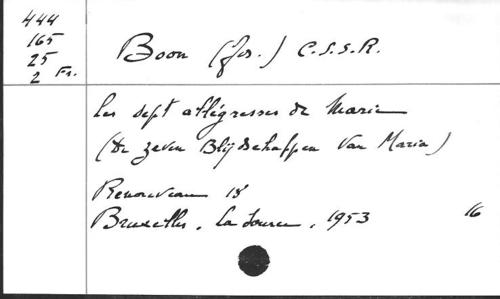 444
165
25
2 Fr.
Boon (Jos.) C.S.S.R.
Les sept allégresses de Marie
(De zeven Blijdschappen van Maria)
Renouveau 18
Bruxelles, La Source, 1953 16